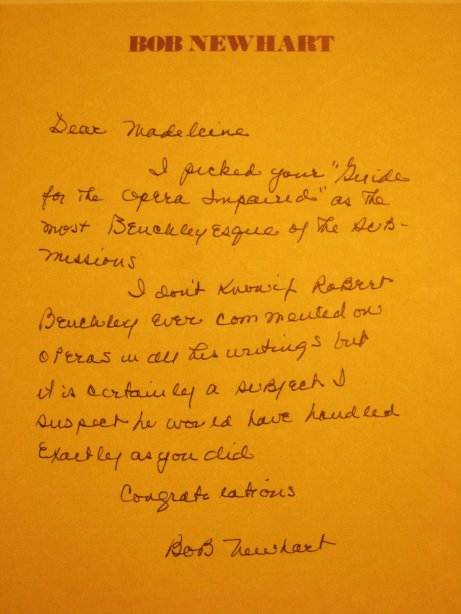 BOB NEWHART
Dear Madeleine
I picked your "Guide
for the Opera Impaired" as the
most Benchleyesque of the sub-
missions
I don't know if Robert
Benchley ever commented on
operas in all his writings but
it is certainly a subject I
suspect he would have handled
Exactley as you did
Congratulations
Bob Newhart